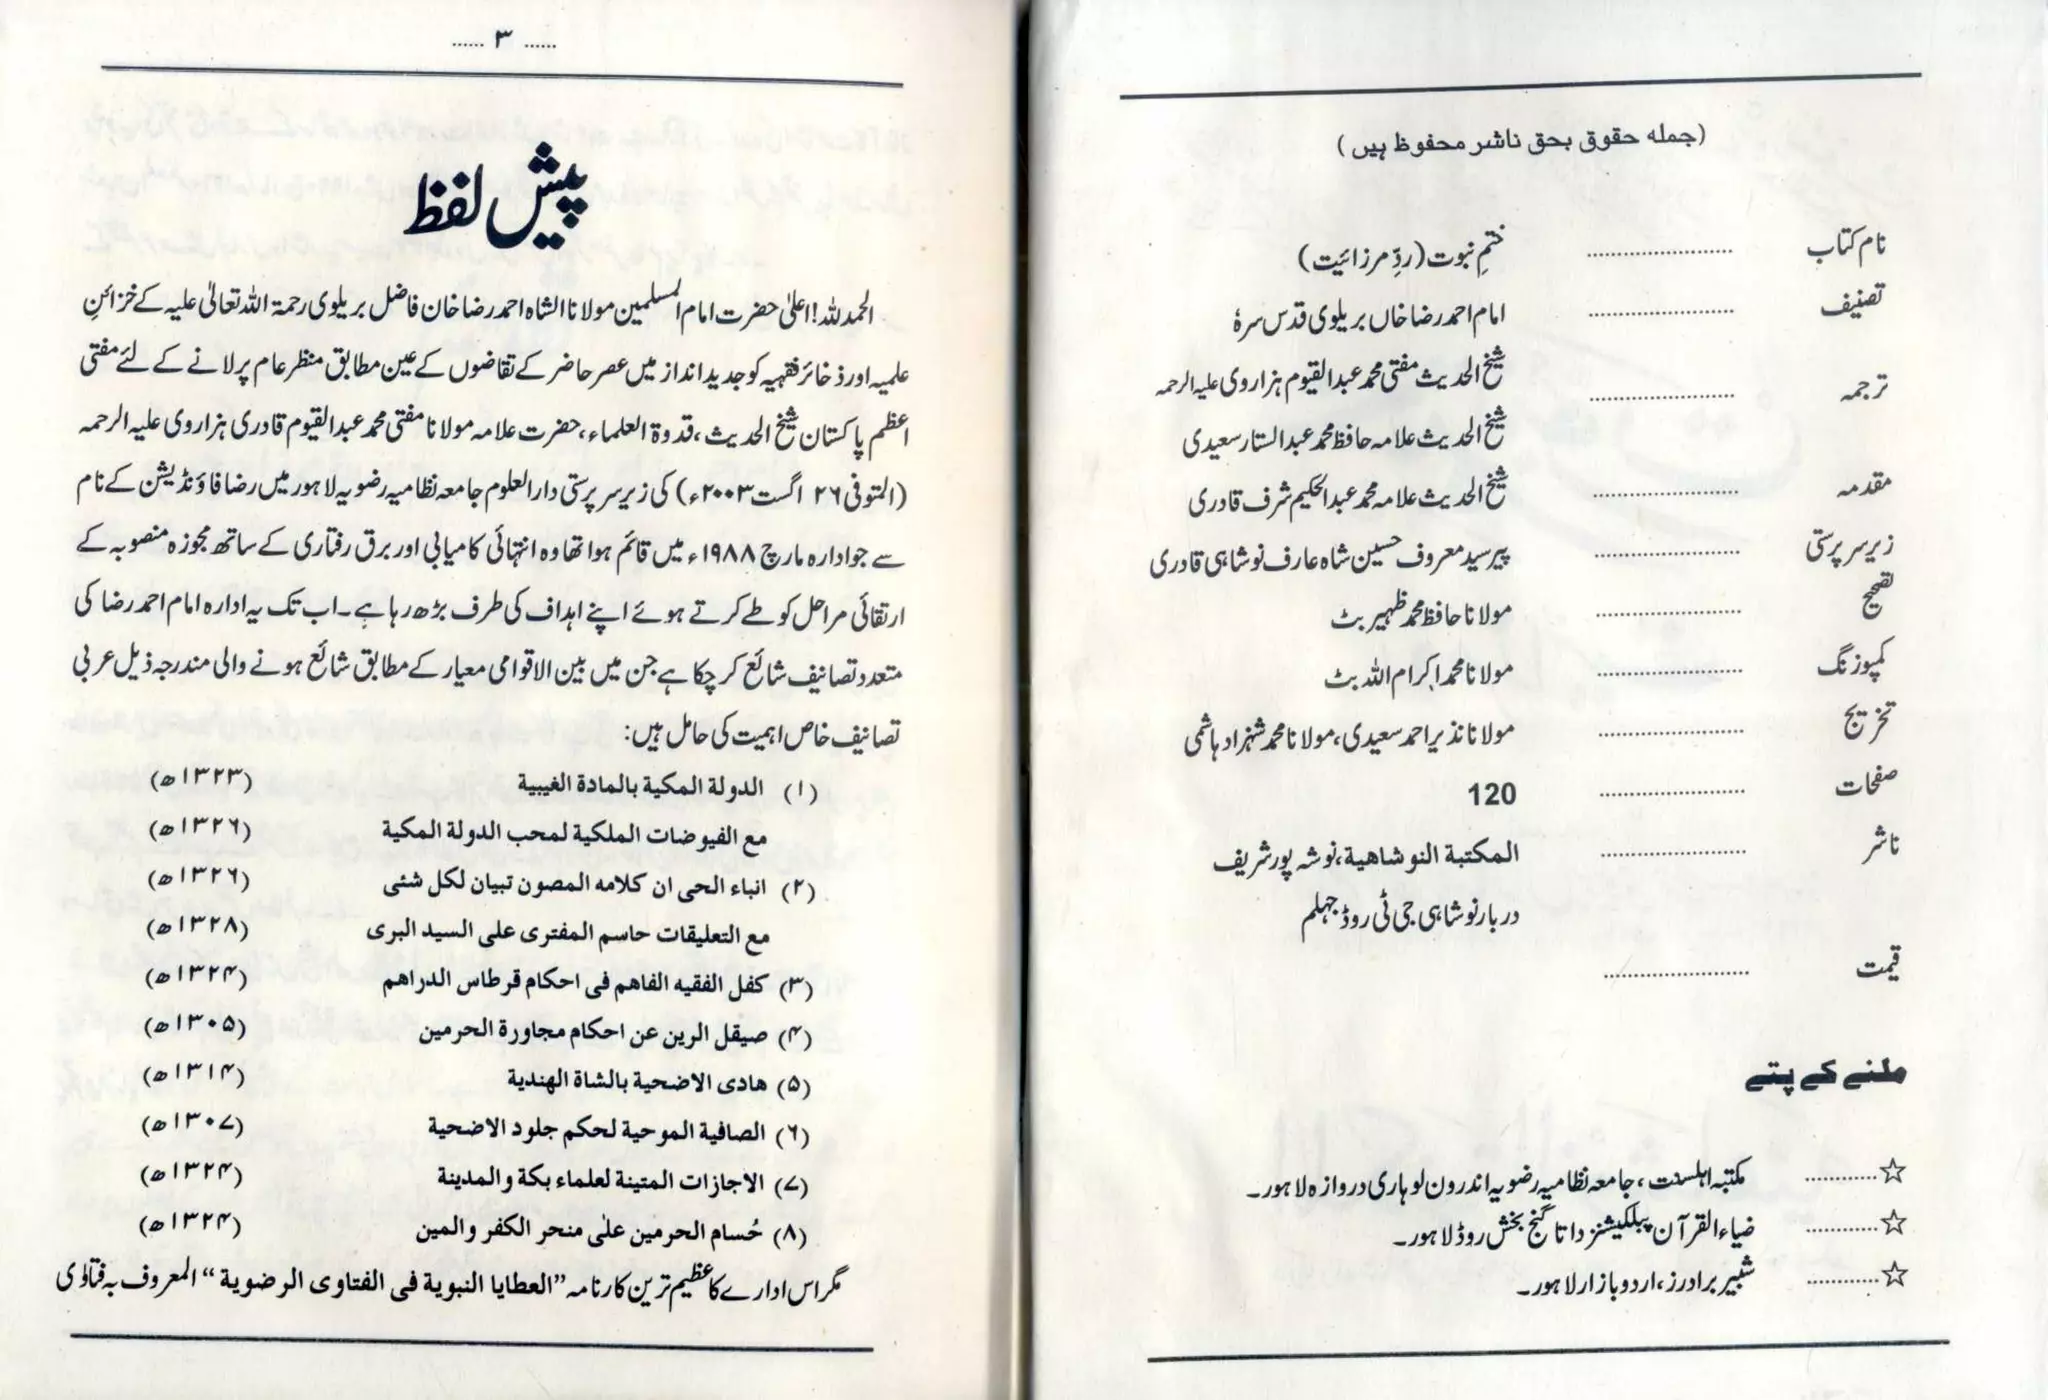 (جملہ حقوق بحق ناشر محفوظ ہیں)
نام کتاب ........................ ختمِ نبوت (ردِّ مرزائیت)
تصنیف ........................ امام احمد رضا خاں بریلوی قدس سرہٗ
ترجمہ ........................ شیخ الحدیث مفتی محمد عبدالقیوم ہزاروی علیہ الرحمہ
شیخ الحدیث علامہ حافظ محمد عبدالستار سعیدی
مقدمہ ........................ شیخ الحدیث علامہ محمد عبدالحکیم شرف قادری
زیر سرپرستی ........................ پیر سید معروف حسین شاہ عارف نوشاہی قادری
تصحیح ........................ مولانا حافظ محمد ظہیر بٹ
کمپوزنگ ........................ مولانا محمد اکرام اللہ بٹ
تخریج ........................ مولانا نذیر احمد سعیدی، مولانا محمد شہزاد ہاشمی
صفحات ........................ 120
ناشر ........................ المکتبة النوشاهية، نوشہ پور شریف
دربار نوشاہی جی ٹی روڈ جہلم
قیمت ........................
ملنے کے پتے
☆ ............ مکتبہ اہلسنت، جامعہ نظامیہ رضویہ اندرون لوہاری دروازہ لاہور۔
☆ ............ ضیاء القرآن پبلکیشنز داتا گنج بخش روڈ لاہور۔
☆ ............ شبیر برادرز، اردو بازار لاہور۔
...... ۳ ......
پیش لفظ
الحمدللہ! اعلیٰ حضرت امام المسلمین مولانا الشاہ احمد رضا خان فاضل بریلوی رحمۃ اللہ تعالیٰ علیہ کے خزائنِ
علمیہ اور ذخائر فقہیہ کو جدید انداز میں عصر حاضر کے تقاضوں کے عین مطابق منظر عام پر لانے کے لئے مفتی
اعظم پاکستان شیخ الحدیث، قدوۃ العلماء، حضرت علامہ مولانا مفتی محمد عبدالقیوم قادری ہزاروی علیہ الرحمہ
(المتوفی ۲۶ اگست ۲۰۰۳ء) کی زیر سرپرستی دارالعلوم جامعہ نظامیہ رضویہ لاہور میں رضا فاؤنڈیشن کے نام
سے جو ادارہ مارچ ۱۹۸۸ء میں قائم ہوا تھا وہ انتہائی کامیابی اور برق رفتاری کے ساتھ مجوزہ منصوبہ کے
ارتقائی مراحل کو طے کرتے ہوئے اپنے اہداف کی طرف بڑھ رہا ہے۔ اب تک یہ ادارہ امام احمد رضا کی
متعدد تصانیف شائع کر چکا ہے جن میں بین الاقوامی معیار کے مطابق شائع ہونے والی مندرجہ ذیل عربی
تصانیف خاص اہمیت کی حامل ہیں:
(۱) الدولة المكية بالمادة الغيبية (۱۳۲۳ھ)
مع الفيوضات الملكية لمحب الدولة المكية (۱۳۲۶ھ)
(۲) انباء الحى ان كلامه المصون تبيان لكل شئى (۱۳۲۶ھ)
مع التعليقات حاسم المفترى على السيد البرى (۱۳۲۸ھ)
(۳) كفل الفقيه الفاهم فى احكام قرطاس الدراهم (۱۳۲۴ھ)
(۴) صيقل الرين عن احكام مجاورة الحرمين (۱۳۰۵ھ)
(۵) هادى الاضحية بالشاة الهندية (۱۳۱۴ھ)
(۶) الصافية الموحية لحكم جلود الاضحية (۱۳۰۷ھ)
(۷) الاجازات المتينة لعلماء بكة والمدينة (۱۳۲۴ھ)
(۸) حُسام الحرمين علىٰ منحر الكفر والمين (۱۳۲۴ھ)
مگر اس ادارے کا عظیم ترین کارنامہ ”العطايا النبوية فى الفتاوى الرضوية“ المعروف بہ فتاوٰی